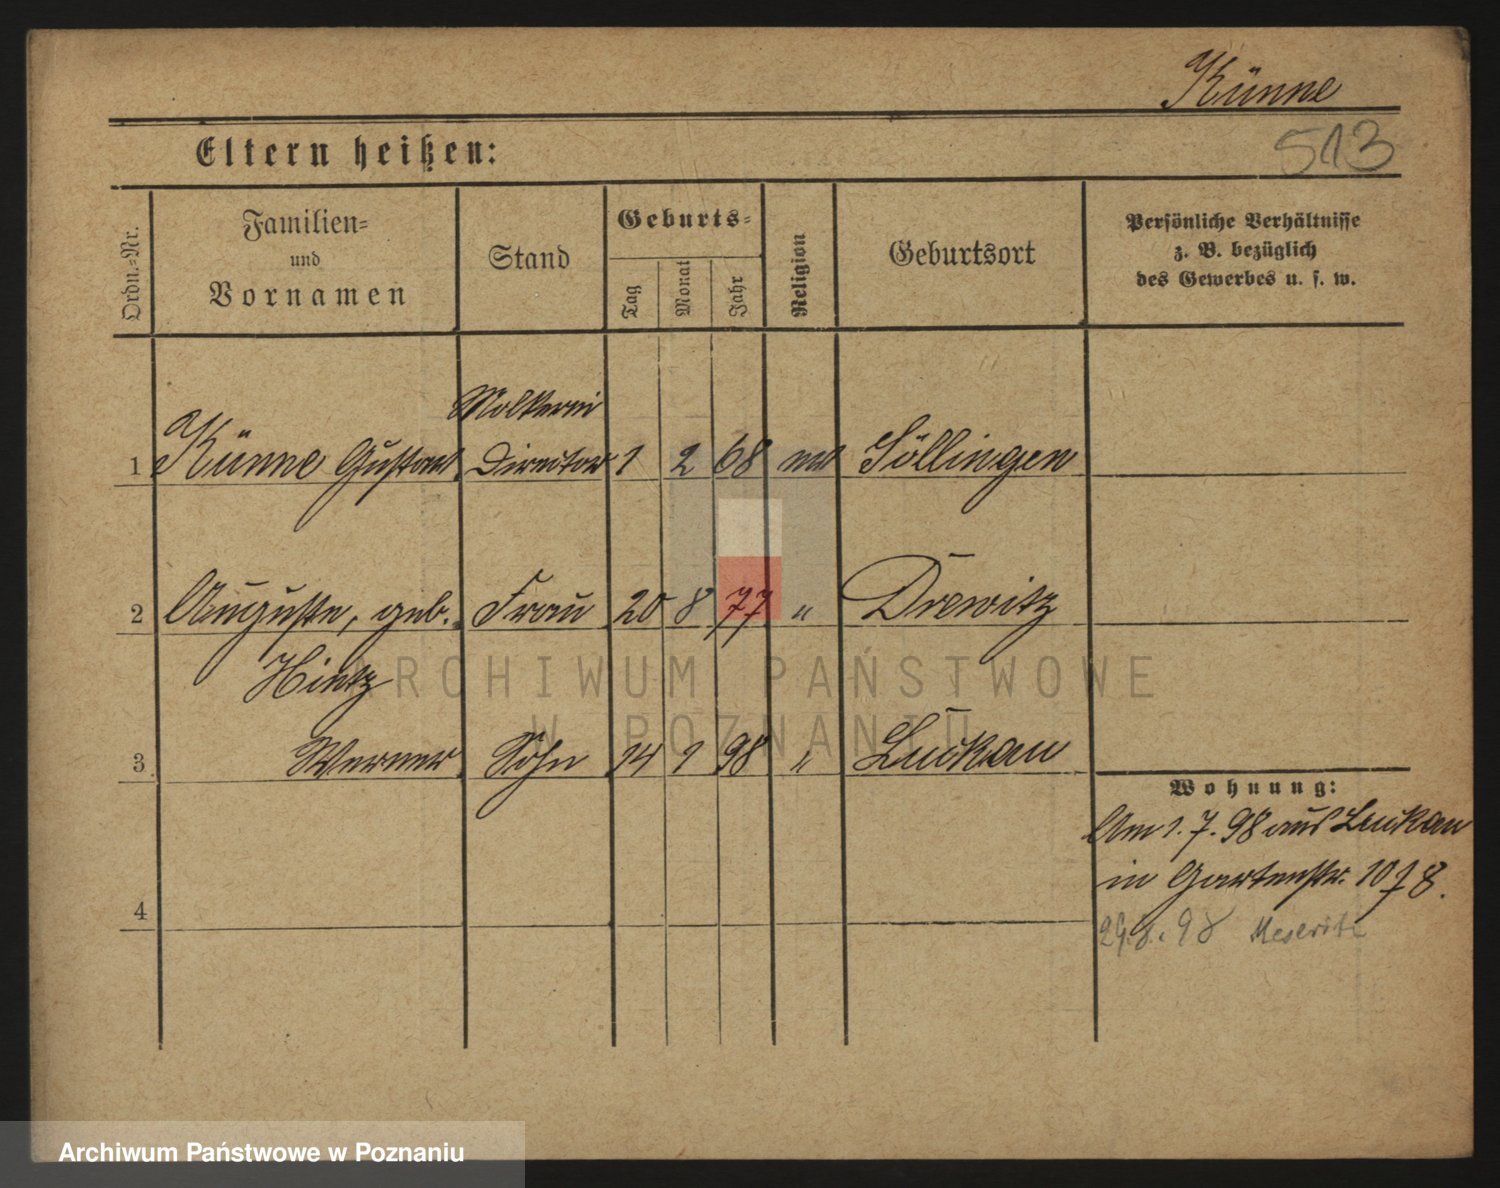 Künne
513
Eltern heißen:
Ordn.-Nr.
Familien-
und
Vornamen
Stand
Geburts-
Tag
Monat
Jahr
Religion
Geburtsort
Persönliche Verhältnisse
z. B. bezüglich
des Gewerbes u. s. w.
Molkerei
1 Künne Gustav Director 1 2 68 ev Söllingen
2 Auguste, geb. Frau 20 8 77 " Drewitz
Hintz
3 Werner Sohn 14 1 98 " Luckau
Wohnung:
Am 1. 7. 98 aus Luckau
in Gartenstr. 10 8.
4
98 Meseritz
ARCHIWUM PAŃSTWOWE
W POZNANIU
Archiwum Państwowe w Poznaniu